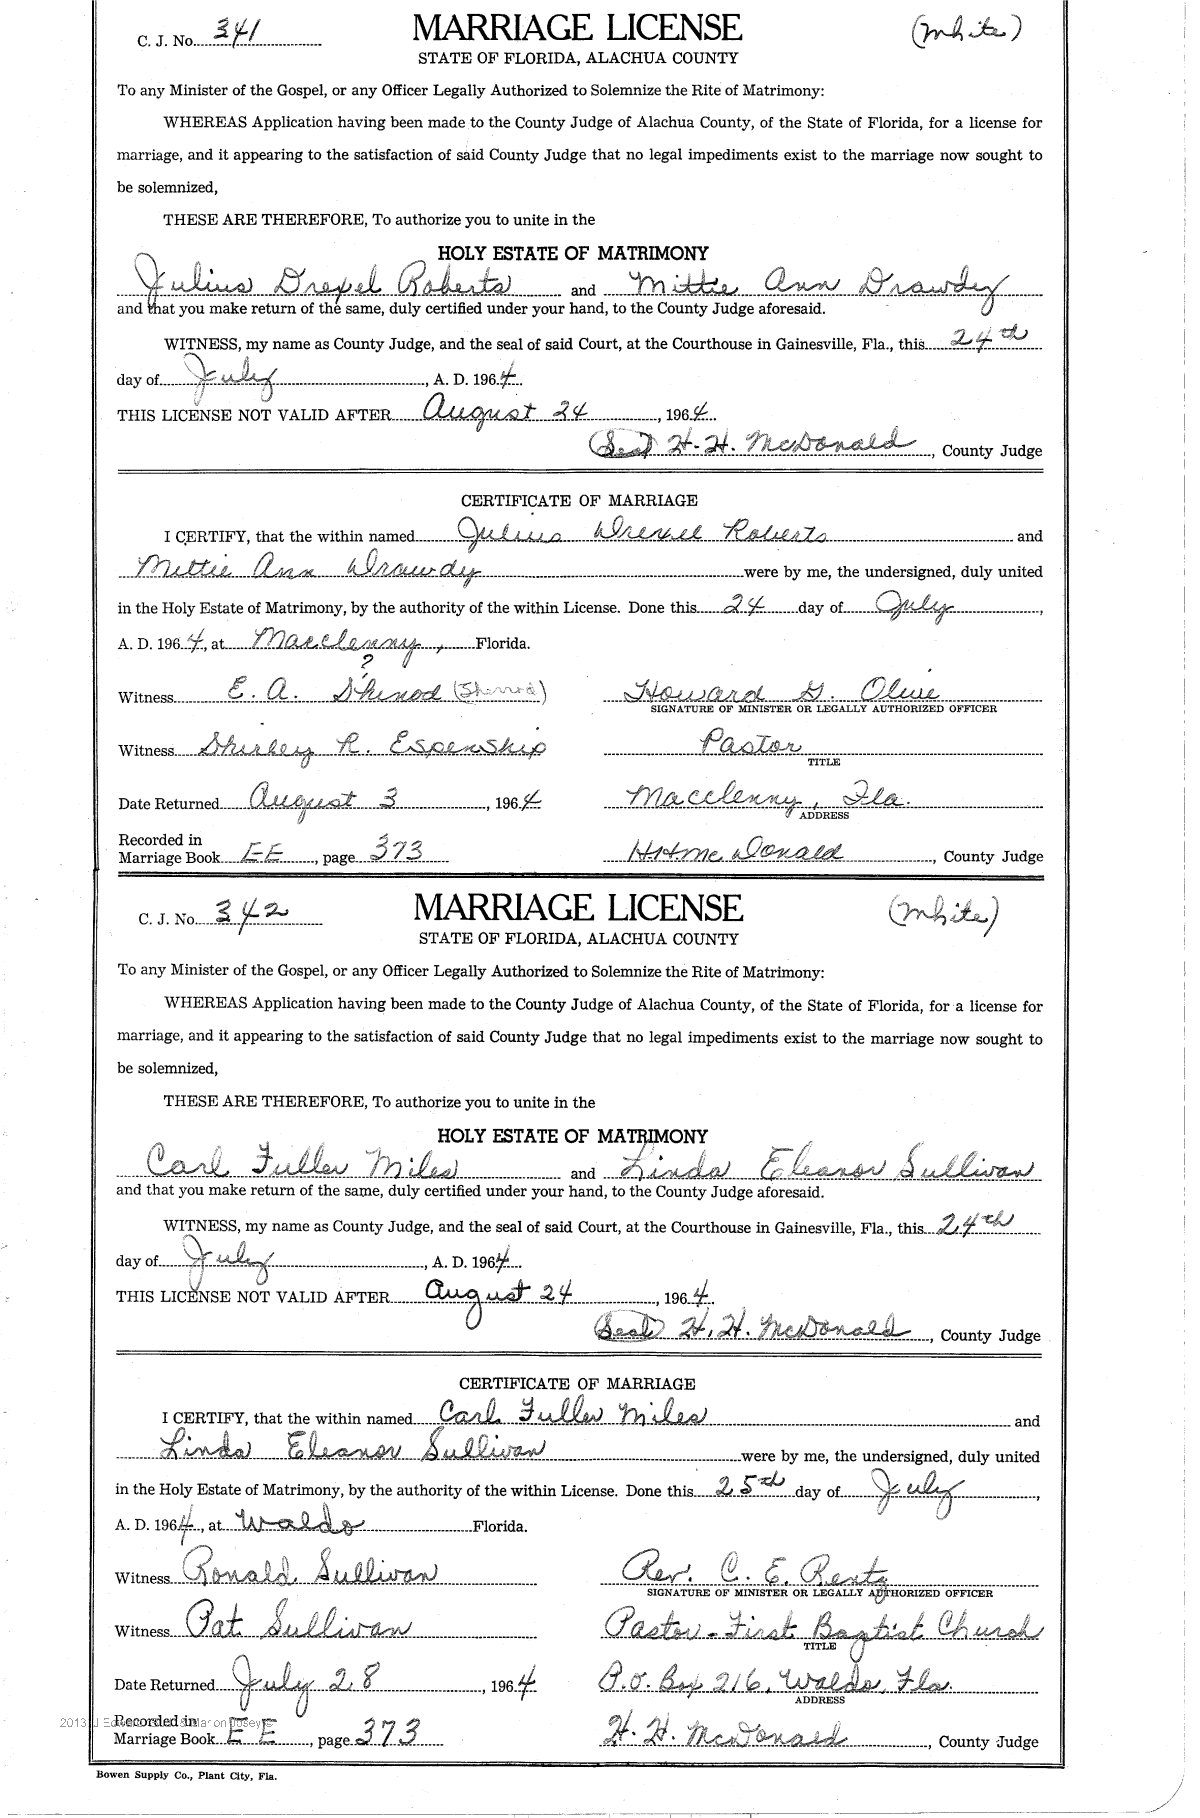 C. J. No. 341 MARRIAGE LICENSE (White)
STATE OF FLORIDA, ALACHUA COUNTY
To any Minister of the Gospel, or any Officer Legally Authorized to Solemnize the Rite of Matrimony:
WHEREAS Application having been made to the County Judge of Alachua County, of the State of Florida, for a license for
marriage, and it appearing to the satisfaction of said County Judge that no legal impediments exist to the marriage now sought to
be solemnized,
THESE ARE THEREFORE, To authorize you to unite in the
HOLY ESTATE OF MATRIMONY
Julius Drexel Roberts and Mittie Ann Drawdy
and that you make return of the same, duly certified under your hand, to the County Judge aforesaid.
WITNESS, my name as County Judge, and the seal of said Court, at the Courthouse in Gainesville, Fla., this 24th
day of July, A. D. 1964
THIS LICENSE NOT VALID AFTER August 24, 1964.
(Seal) H. H. McDonald, County Judge
CERTIFICATE OF MARRIAGE
I CERTIFY, that the within named Julius Drexel Roberts and
Mittie Ann Drawdy were by me, the undersigned, duly united
in the Holy Estate of Matrimony, by the authority of the within License. Done this 24 day of July,
A. D. 1964, at Macclenny, Florida.
?
Witness E. A. Shenod (Sherrod) Howard G. Olive
SIGNATURE OF MINISTER OR LEGALLY AUTHORIZED OFFICER
Witness Shirley R. Espenship Pastor
TITLE
Date Returned August 3, 1964 Macclenny, Fla.
ADDRESS
Recorded in
Marriage Book EE, page 373 H H McDonald, County Judge
C. J. No. 342 MARRIAGE LICENSE (White)
STATE OF FLORIDA, ALACHUA COUNTY
To any Minister of the Gospel, or any Officer Legally Authorized to Solemnize the Rite of Matrimony:
WHEREAS Application having been made to the County Judge of Alachua County, of the State of Florida, for a license for
marriage, and it appearing to the satisfaction of said County Judge that no legal impediments exist to the marriage now sought to
be solemnized,
THESE ARE THEREFORE, To authorize you to unite in the
HOLY ESTATE OF MATRIMONY
Carl Fuller Miles and Linda Eleanor Sullivan
and that you make return of the same, duly certified under your hand, to the County Judge aforesaid.
WITNESS, my name as County Judge, and the seal of said Court, at the Courthouse in Gainesville, Fla., this 24th
day of July, A. D. 1964
THIS LICENSE NOT VALID AFTER August 24, 1964.
(Seal) H. H. McDonald, County Judge
CERTIFICATE OF MARRIAGE
I CERTIFY, that the within named Carl Fuller Miles and
Linda Eleanor Sullivan were by me, the undersigned, duly united
in the Holy Estate of Matrimony, by the authority of the within License. Done this 25th day of July,
A. D. 1964, at Waldo Florida.
Witness Ronald Sullivan Rev. C. E. Rentz
SIGNATURE OF MINISTER OR LEGALLY AUTHORIZED OFFICER
Witness Pat Sullivan Pastor - First Baptist Church
TITLE
Date Returned July 28, 1964 P.O. Box 216, Waldo, Fla.
ADDRESS
Recorded in
2013
Marriage Book EE, page 373 H. H. McDonald, County Judge
Bowen Supply Co., Plant City, Fla.